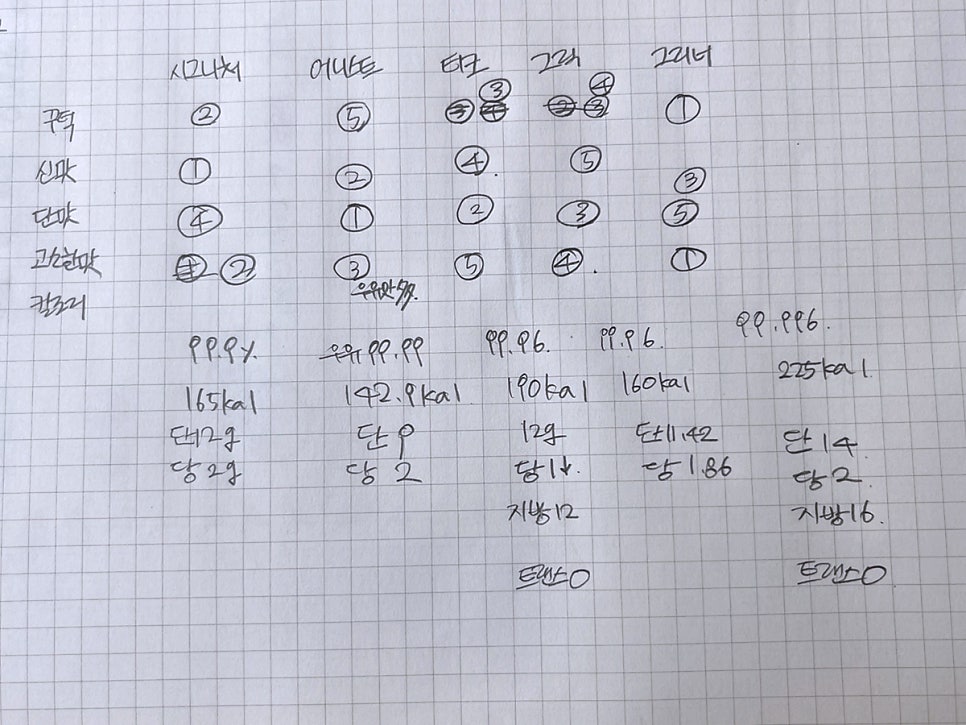 시그니처 어니스트 티코 그릭 그리너
꾸덕 ② ⑤ ③ ④ ①
신맛 ① ② ④ ⑤ ③
단맛 ④ ① ② ③ ⑤
고소한맛 ② ③ ⑤ ④ ①
칼로리
99.9% 99.99 99.96. 99.96. 99.996.
165kal 142.9kal 190kal 160kal 225kal.
단12g 단 9 12g 단11.42 단14
당2g 당 2 당1↓. 당 1.86 당 2.
지방12 지방16.
트랜스0 트랜스0.